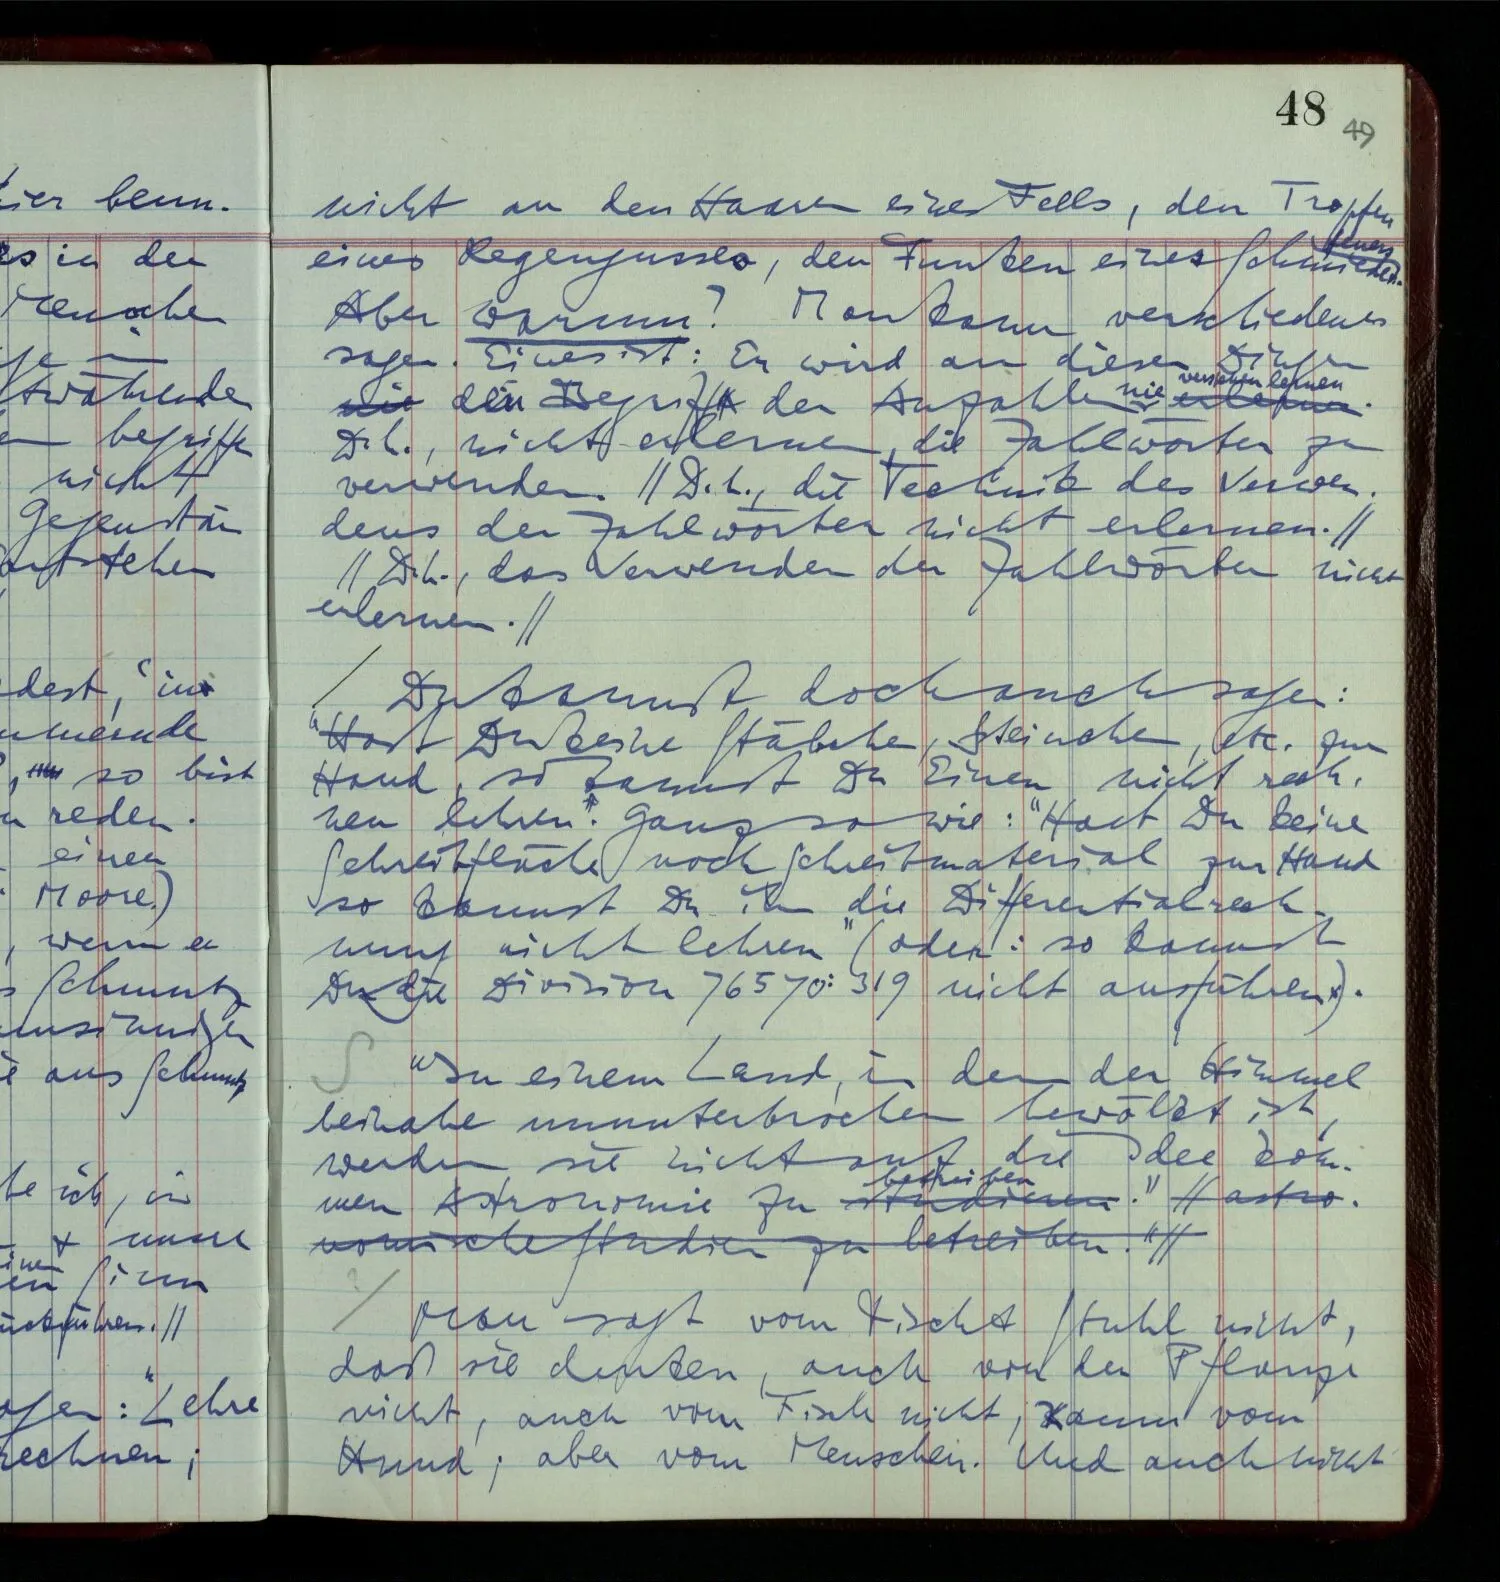 48
49
ier benu.
es in der
Menschen
twährende
begriffe
nicht
Gegenstän
entstehen
dest, "im
, so bist
reden.
einen
Moore.)
, wenn er
Schmutz
e aus Schmutz
te ich, in
unsere
einen
Sinn
ückführen.//
agen: "Lehre
rechnen;
nicht an den Haaren eines Fells, den Tropfen
feuers
eines Regengusses, den Funken eines Schmiede
Aber warum? Man kann verschiedenes
sagen. Eines ist: Er wird an diesen Dingen
nie verstehen lernen
nie den Begriff der Anzahl erlernen.
D.h., nicht erlernen, die Zahlwörter zu
verwenden. // D.h., die Technik des Verwen-
dens der Zahlwörter nicht erlernen. //
// D.h., das Verwenden der Zahlwörter nicht
erlernen. //
/ Du kannst doch auch sagen:
"Hast Du keine Stäbchen, Steinchen, etc. zur
Hand, so kannst Du Einen nicht rech-
nen lehren". Ganz so wie: "Hast Du keine
Schreibfläche noch Schreibmaterial zur Hand
so kannst Du ihn die Differentialrech-
nung nicht lehren" (oder: so kannst
Du die Division 76570:319 nicht ausführen).
S "In einem Land, in dem der Himmel
beinahe ununterbrochen bewölkt ist,
werden sie nicht auf die Idee kom-
betreiben
men Astronomie zu studieren." // astro-
nomische Studien zu betreiben." //
? / Man sagt vom Tisch & Stuhl nicht,
daß sie denken, auch von der Pflanze
nicht, auch vom Fisch nicht, kaum vom
Hund; aber vom Menschen. Und auch nicht